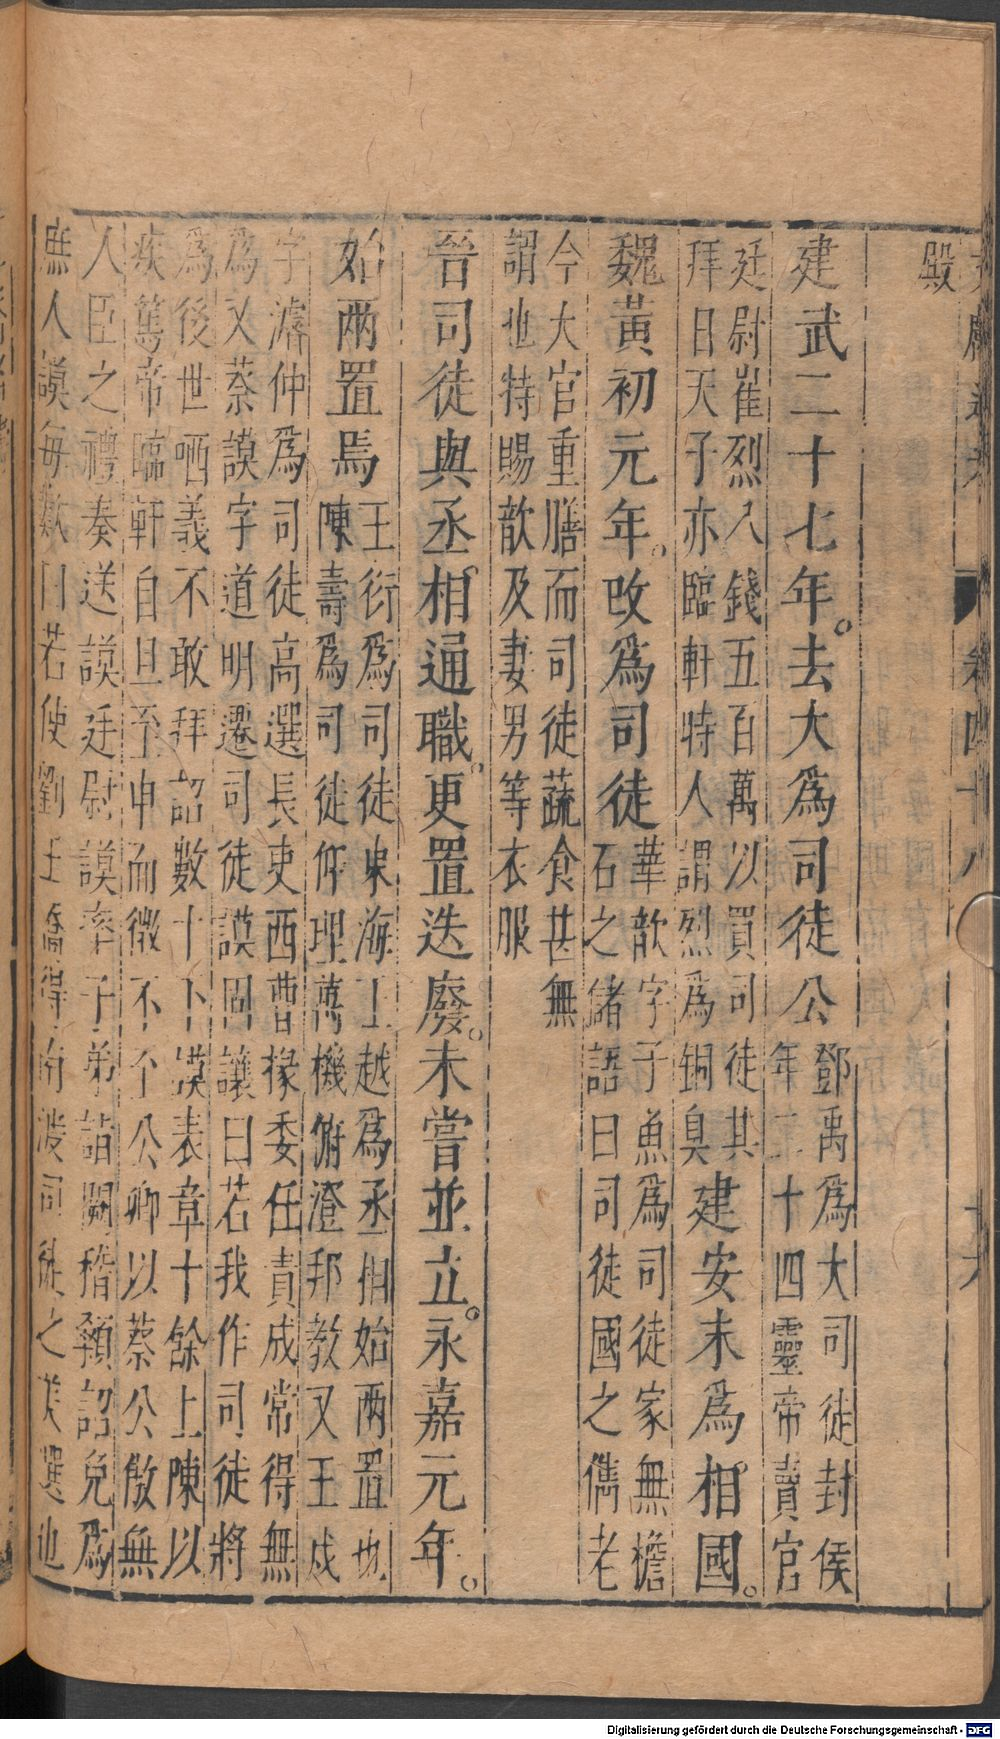 文獻通考 卷四十八 十六
殿
建武二十七年。去大爲司徒公
鄧禹爲大司徒封侯
年二十四靈帝賣官
廷尉崔烈入錢五百萬以買司徒其
拜日天子亦臨軒特人謂烈爲銅臭
建安末爲相國。
魏黃初元年。改爲司徒
華歆字子魚爲司徒家無檐
石之儲語曰司徒國之儁老
今大官重膳而司徒蔬食甚無
謂也特賜歆及妻男等衣服
晉司徒與丞相通職。更置迭廢。未嘗並立。永嘉元年。
始兩置焉
王衍爲司徒東海王越爲丞相始兩置也
陳壽爲司徒仰理萬機俯澄邦教又王戎
字濬仲爲司徒高選長吏西曹掾委任責成常得無
爲又蔡謨字道明遷司徒謨固讓曰若我作司徒將
爲後世哂義不敢拜詔數十下謨表章十餘上陳以
疾篤帝臨軒自旦至申而徵不至公卿以蔡公傲無
人臣之禮奏送謨廷尉謨率子弟詣闕稽顙詔免爲
庶人謨每歎曰若使劉王喬得南渡司徒之美選也
Digitalisierung gefördert durch die Deutsche Forschungsgemeinschaft - DFG